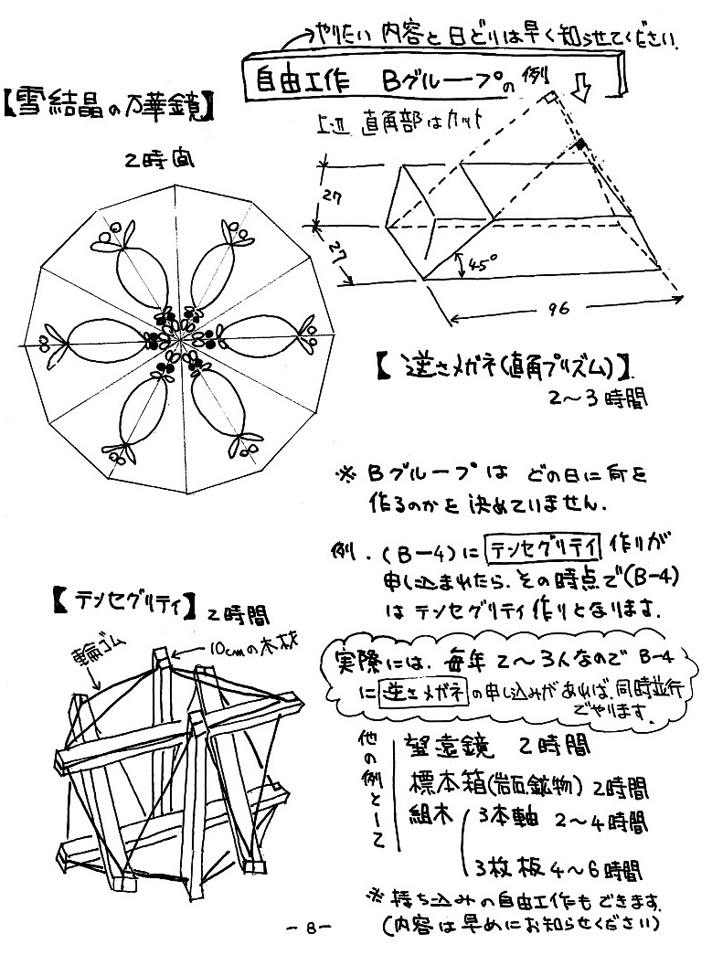 →やりたい 内容と 日どりは早く知らせてください.
自由工作 Bグループの例
【雪結晶の万華鏡】
2時間
上辺 直角部はカット
27
27
45°
96
【逆さメガネ(直角プリズム)】.
2～3時間
※ Bグループは どの日に何を
作るのかを 決めていません.
例. (B-4)に テンセグリティ 作りが
申し込まれたら. その時点で(B-4)
は テンセグリティ作りとなります.
【テンセグリティ】2時間
輪ゴム
10cmの木材
実際には. 毎年 2～3人なので B-4
に 逆さメガネ の申し込みがあれば. 同時並行
でやります.
他の例として
望遠鏡 2時間
標本箱(岩石鉱物) 2時間
組木 3本軸 2～4時間
3枚板 4～6時間
※持ち込みの自由工作もできます.
(内容は早めにお知らせください)
-8-